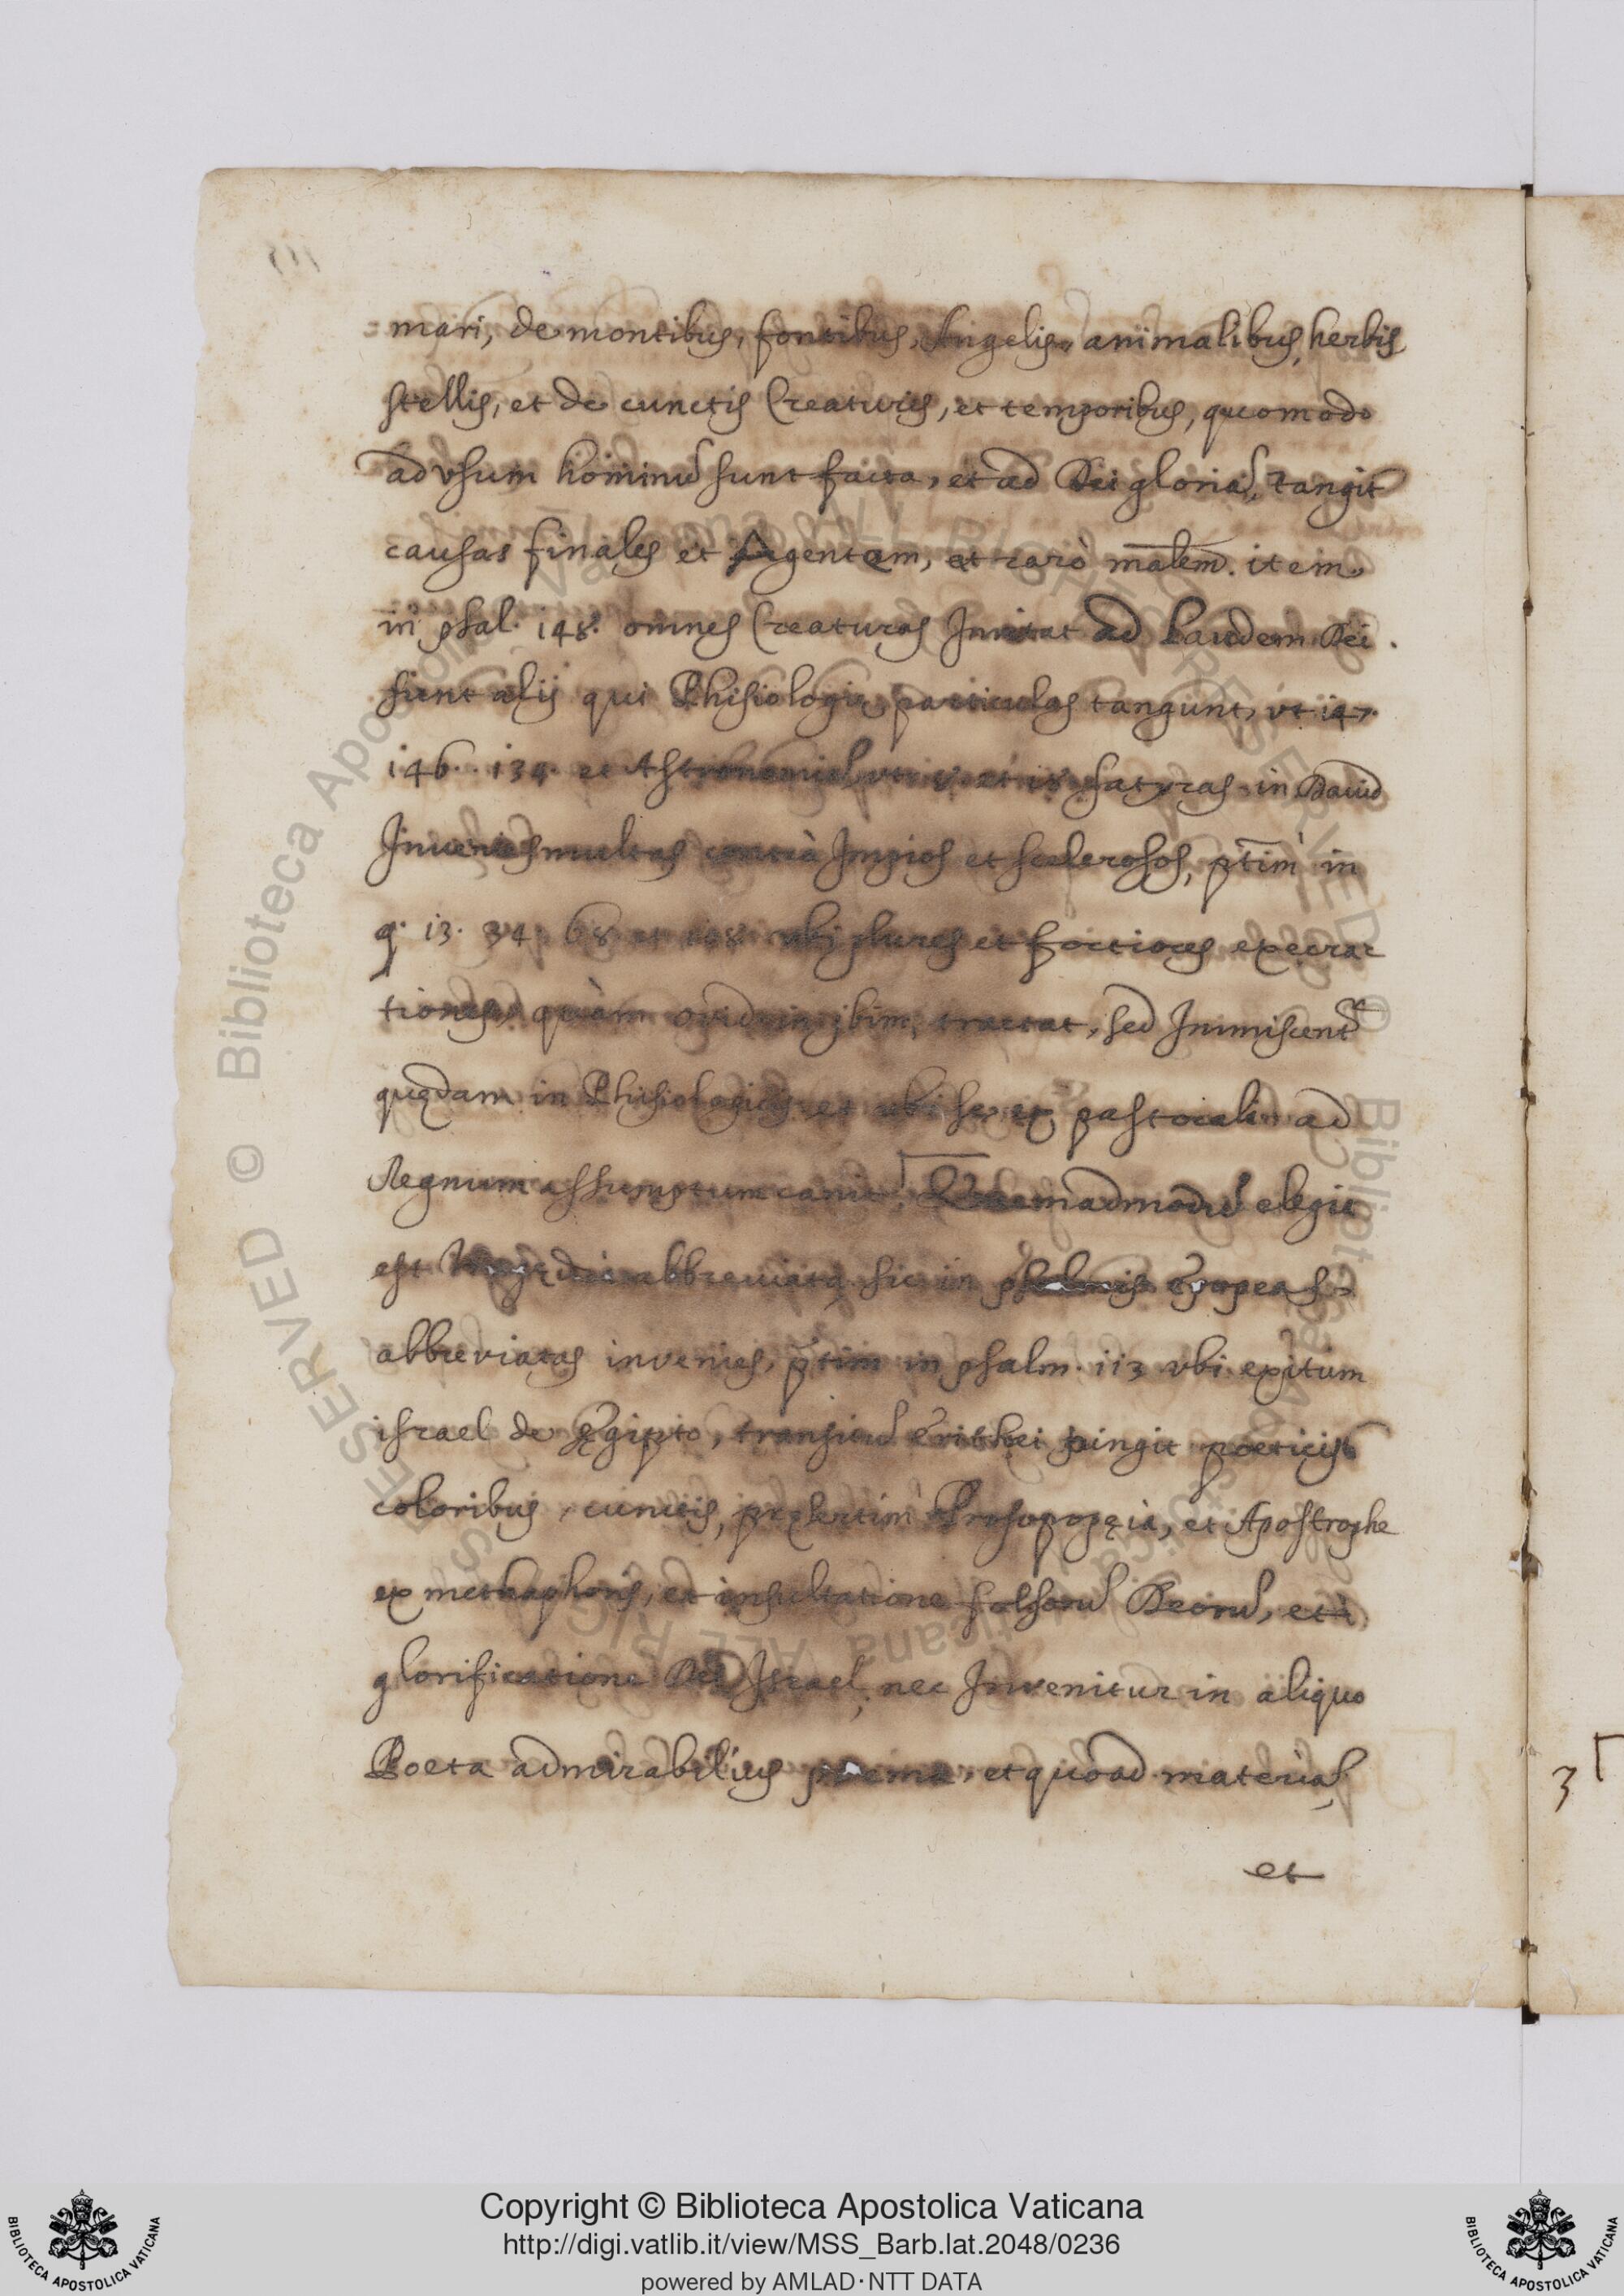 mari, de montibus, fontibus, Angelis, animalibus, herbis
stellis, et de cunctis Creaturis, et temporibus, quomodo
ad vsum hominũ sunt facta, et ad Dei gloriã, tangit
causas finales et Agentem, et rarò mãlem. item
in psal. 148. omnes Creaturas Inuitat ad Laudem Dei.
sunt alij qui Phisiologię particulas tangunt, vt
146. 134. et satyras in Dauid
Inuenies multas contrà Impios et scelerosos, p̃tim in
9. 13. 34. 68 et 108 ubi plures et fortiores execra-
tiones, quàm ovid. in ibim, tractat, sed Immiscent.r
quędam in Phisiologicis et ubi se ex pastorali ad
Regnum assumptum canit. Quemadmodũ elegit
est abbreviata, sic in psalmis epopeas
abbreviatas invenies, p̃tim in psalm. 113 vbi exitum
israel de ęgipto, transitũ erithrei pingit poeticis
coloribus cunctis, pręsertim Prosopopęià, et Apostrophe
ex methaphoris, et insultatione falsorũ Deorũ, et
glorificatione Dei Israel, nec Invenitur in aliquo
Poeta admirabilius poema, et quoad materiã,
et
3
© Biblioteca Apostolica Vaticana ALL RIGHTS RESERVED
Copyright © Biblioteca Apostolica Vaticana
http://digi.vatlib.it/view/MSS_Barb.lat.2048/0236
powered by AMLAD·NTT DATA
BIBLIOTECA APOSTOLICA VATICANA
BIBLIOTECA APOSTOLICA VATICANA